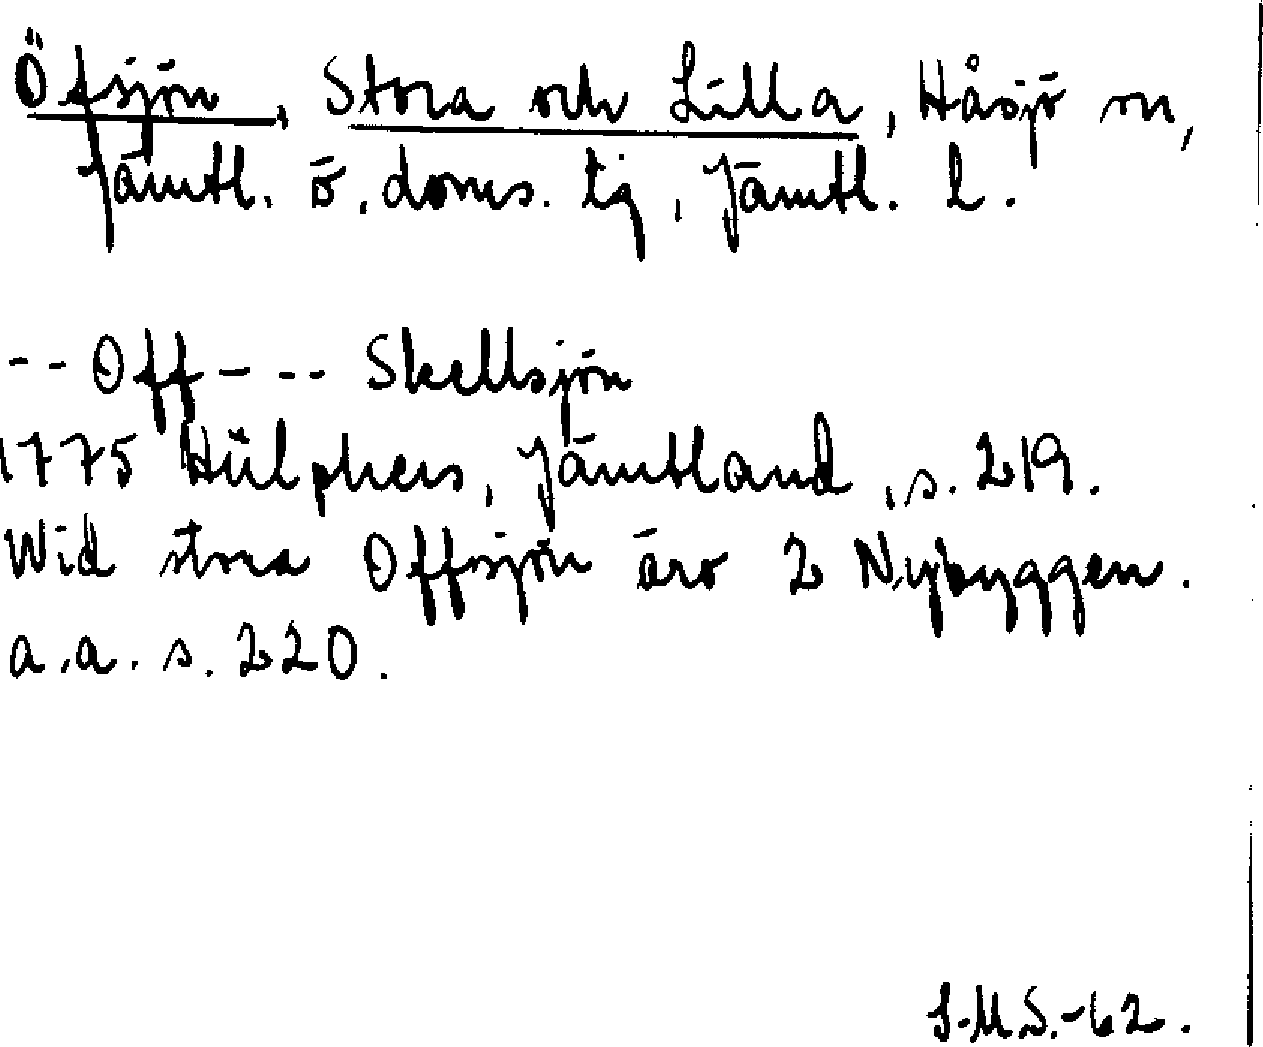 Öfsjön, Stora och Lilla, Håsjö sn,
Jämtl. ö. doms. tg, Jämtl. l.
-- Off - -- Skellsjön
1775 Hülphers, Jämtland, s. 219.
Wid stora Offsjön äro 2 Nybyggen.
a.a. s. 220.
I.M.S.-62.